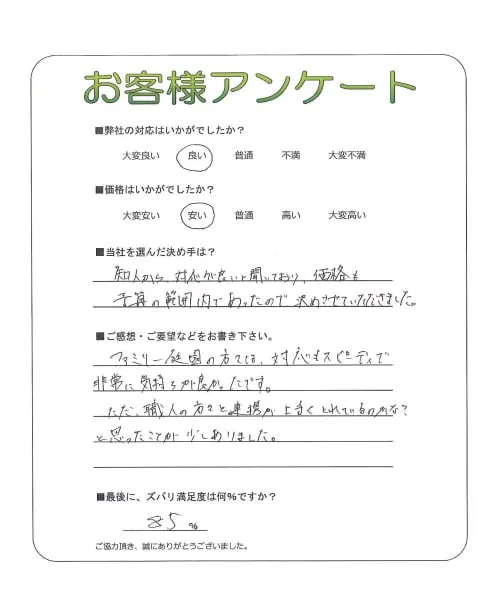 お客様アンケート
■弊社の対応はいかがでしたか？
大変良い 良い 普通 不満 大変不満
■価格はいかがでしたか？
大変安い 安い 普通 高い 大変高い
■当社を選んだ決め手は？
知人から、対応が良いと聞いており、価格も
予算の範囲内であったので決めさせていただきました。
■ご感想・ご要望などをお書き下さい。
ファミリー庭園の方々は、対応もスピーディで
非常に気持ちが良かったです。
ただ、職人の方々と連携が上手くとれているのかな？
と思ったことが少しありました。
■最後に、ズバリ満足度は何％ですか？
85％
ご協力頂き、誠にありがとうございました。